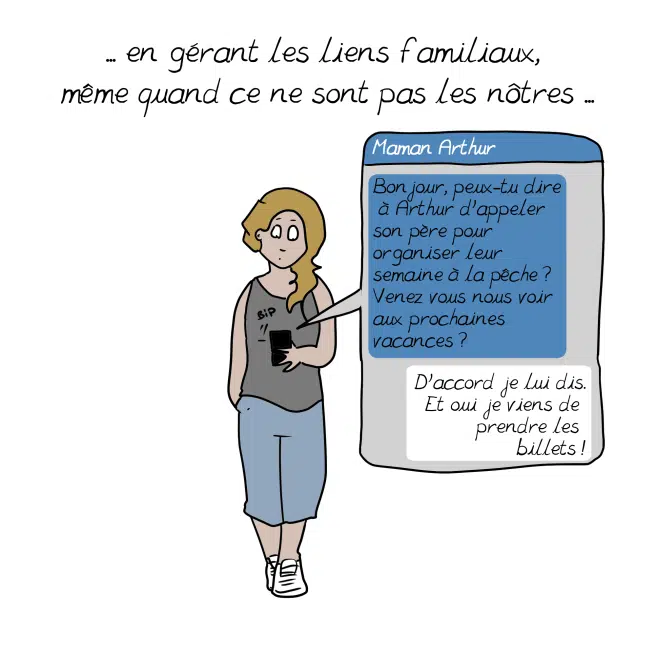 ... en gérant les liens familiaux,
même quand ce ne sont pas les nôtres ...
Maman Arthur
Bonjour, peux-tu dire
à Arthur d'appeler
son père pour
organiser leur
semaine à la pêche ?
Venez vous nous voir
aux prochaines
vacances ?
BIP
D'accord je lui dis.
Et oui je viens de
prendre les
billets !